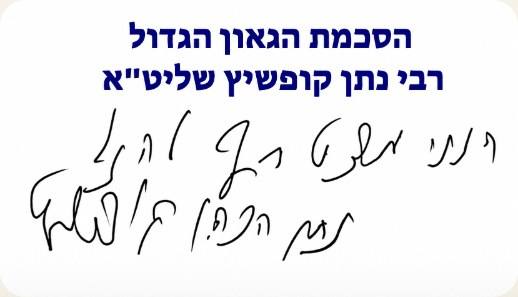 הסכמת הגאון הגדול
רבי נתן קופשיץ שליט"א
הנני
נתן הכהן קופשיץ